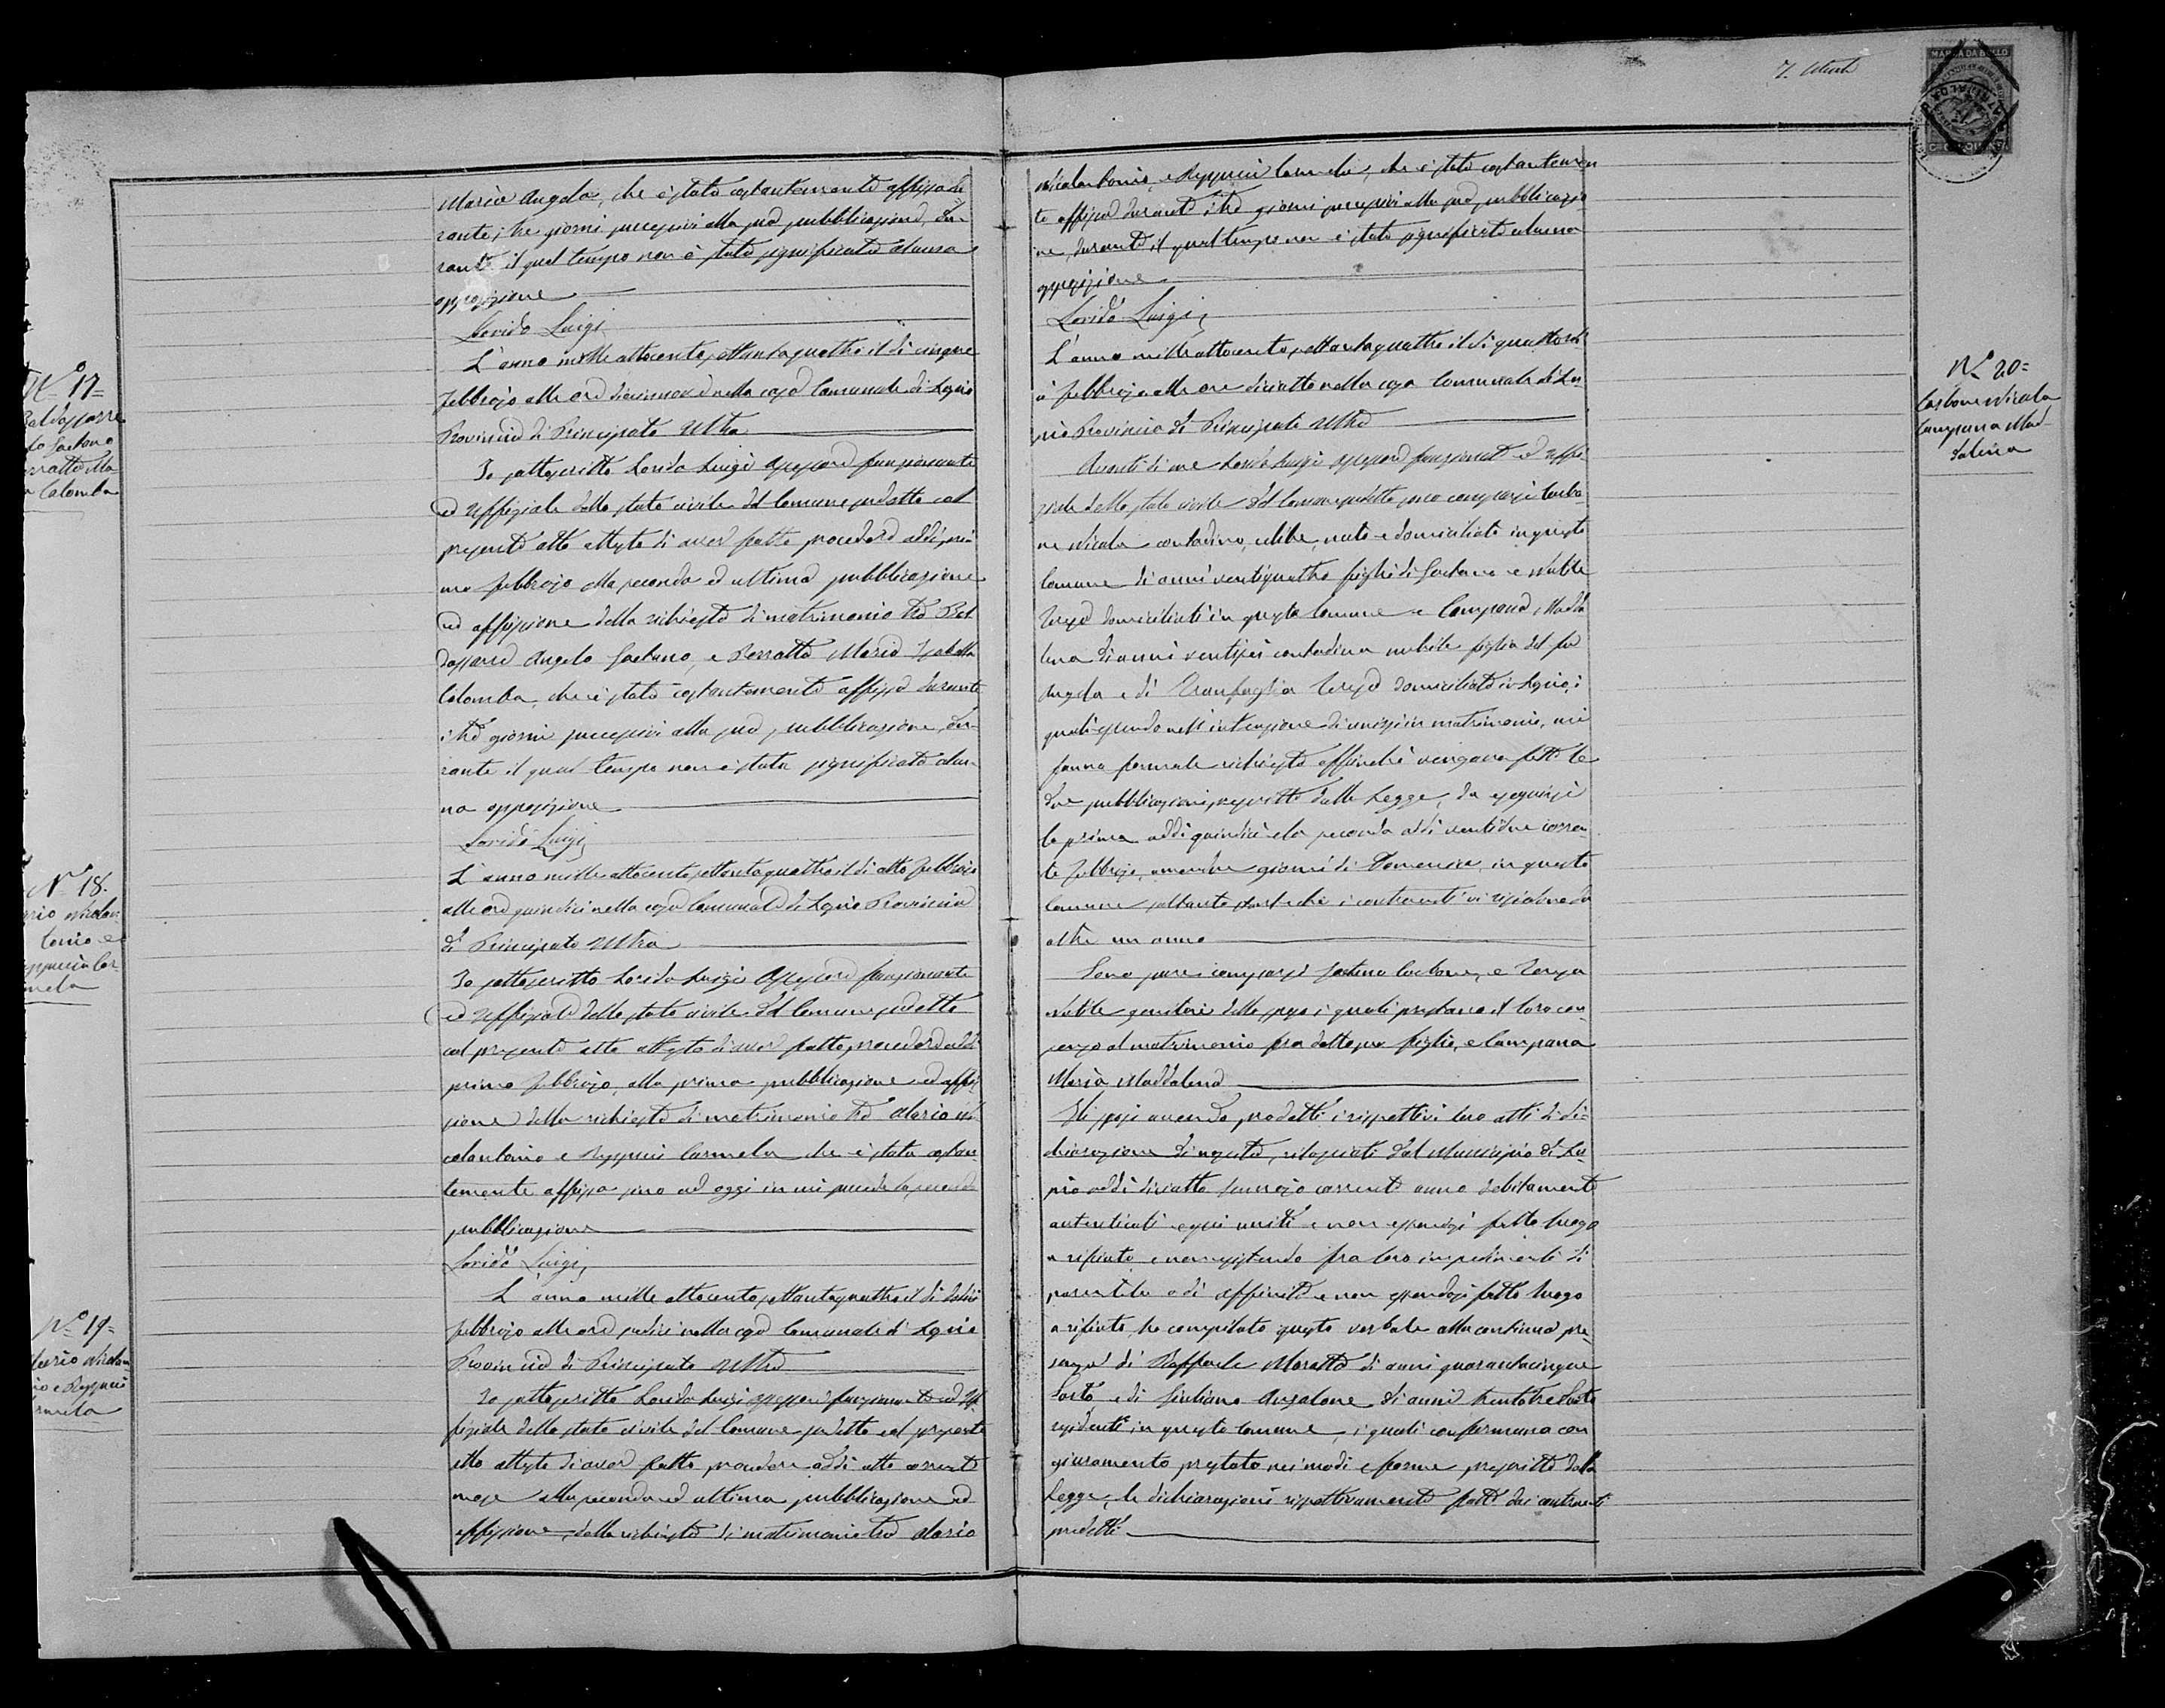 Maria Angela, che è stata costantemente affissa du
rante i tre giorni successivi alla sua pubblicazione, du-
rante il qual tempo non è stata significata alcuna
opposizione
Lorido Luigi
N.° 17=
Baldassarre
lo Gaetano
Colomba
L'anno mille ottocento settantaquattro il dì cinque
Febbrajo alle ore diciannove nella casa Comunale di Lapio
Provincia di Principato Ultra
Io sottoscritto Lorido Luigi Assessore funzionante
ed Uffiziale dello stato civile del Comune sudetto col
presente atto attesto di aver fatto procedere addì pri-
mo febbrajo alla seconda ed ultima pubblicazione
ed affissione della richiesta di matrimonio tra Bal
dassarre Angelo Gaetano, e Maria Isabella
Colomba, che è stata costantemente affissa durante
i tre giorni successivi alla sua pubblicazione, du-
rante il qual tempo non è stata significata alcu-
na opposizione
Lorido Luigi
N.° 18.
nio Nicolan
tonio e
mela
L'anno mille ottocento settantaquattro il dì otto febbrajo
alle ore quindici nella casa Comunale di Lapio Provincia
di Principato Ultra
Io sottoscritto Lorido Luigi Assessore funzionante
ed Uffiziale dello stato civile del Comune sudetto
col presente atto attesto di aver fatto procedere addì
primo febbrajo, alla prima pubblicazione ed affis
sione della richiesta di matrimonio tra Ni
colantonio e Carmela che è stata costan-
temente affissa sino ad oggi in cui succede la seconda
pubblicazione
Lorido Luigi
N.° 19=
Nicolan
nio e
rmela
L'anno mille ottocento settantaquattro il dì dodici
febbrajo alle ore sedici nella casa Comunale di Lapio
Provincia di Principato Ultra
Io sottoscritto Lorido Luigi Assessore funzionante ed Uf
fiziale dello stato civile del Comune sudetto col presente
atto attesto di aver fatto procedere addì otto corrente
mese alla seconda ed ultima pubblicazione ed
affissione della richiesta di matrimonio tra
MARCA DA BOLLO
Nicolantonio, e Carmela, che è stata costantemen
te affissa durante i tre giorni successivi alla sua pubblicazio
ne, durante il qual tempo non è stata significata alcuna
opposizione
Lorido Luigi
N.° 20=
Carbone Nicola
Campana Mad-
dalena
L'anno mille ottocento settantaquattro il dì quattordi
ci febbrajo alle ore diciotto nella casa Comunale di La-
pio Provincia di Principato Ultra
Avanti di me Lorido Luigi Assessore funzionante ed Uffi
ziale dello stato civile del Comune sudetto sono comparsi Carbo-
ne Nicola contadino, celibe, nato e domiciliato in questo
Comune di anni ventiquattro figlio di Gaetano e Nobile
Teresa domiciliati in questo Comune e Campana Madda
lena di anni ventisei contadina nubile figlia del fu
Angelo e di Tranfaglia Teresa domiciliata in Lapio, i
quali essendo nell'intenzione di unirsi in matrimonio, mi
fanno formale richiesta affinchè vengano fatte le
due pubblicazioni prescritte dalla Legge, da eseguirsi
la prima addì quindici e la seconda addì ventidue corren
te febbrajo, amendue giorni di Domenica, in questo
Comune soltanto che i contraenti vi risiedono da
oltre un anno
Sono pure comparsi Gaetano Carbone, e Teresa
Nobile genitori dello sposo i quali prestano il loro con
senso al matrimonio fra detto suo figlio, e Campana
Maria Maddalena
Gli sposi avendo prodotti i rispettivi loro atti di di-
chiarazione di nascita, rilasciati dal Municipio di La-
pio addì diciotto Gennajo corrente anno debitamente
autenticati e qui uniti e non essendosi fatto luogo
a rifiuto e non esistendo fra loro impedimenti di
parentela o di affinità e non essendosi fatto luogo
a rifiuto, ho compilato questo verbale alla continua pre-
senza di Raffaele Moratto di anni quarantacinque
Sarto e di Giuliano Anzalone di anni trentatre Sarto
residenti in questo Comune, i quali confermano con
giuramento prestato nei modi e forme prescritte dalla
Legge, le dichiarazioni rispettivamente fatte dai contraenti
predetti